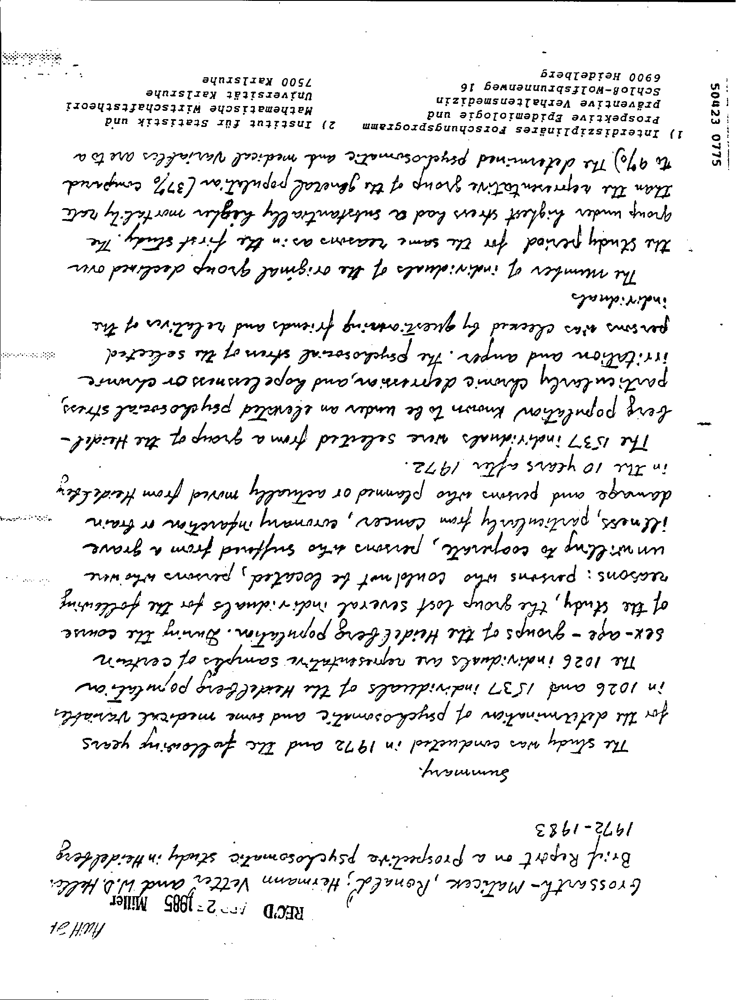 REC'D 2 1985 Miller
Grossarth-Maticek, Ronald 1), Hermann Vetter 2) and W.D. Heller
Brief Report on a Prospective psychosomatic study in Heidelberg
1972-1983
Summary.
The study was conducted in 1972 and the following years
for the determination of psychosomatic and some medical variables
in 1026 and 1537 individuals of the Heidelberg population
The 1026 individuals are representative samples of certain
sex-age-groups of the Heidelberg population. During the course
of the study, the group lost several individuals for the following
reasons: persons who could not be located, persons who were
unwilling to cooperate, persons who suffered from a grave
illness, particularly from cancer, coronary infarction or brain
damage and persons who planned or actually moved from Heidelberg
in the 10 years after 1972.
The 1537 individuals were selected from a group of the Heidel-
berg population known to be under an elevated psychosocial stress,
particularly chronic depression, and hopelessness or chronic
irritation and anger. The psychosocial stress of the selected
persons was checked by questioning friends and relatives of the
individuals
The number of individuals of the original group declined over
the study period for the same reasons as in the first study. The
group under highest stress had a substantially higher mortality rate
than the representative group of the general population (37% compared
to 9%) The determined psychosomatic and medical variables are to a
1) Interdisziplinäres Forschungsprogramm
Prospektive Epidemiologie und
präventive Verhaltensmedizin
Schloß-Wolfsbrunnenweg 16
6900 Heidelberg
2) Institut für Statistik und
Mathematische Wirtschaftstheori
Universität Karlsruhe
7500 Karlsruhe
50423 0775